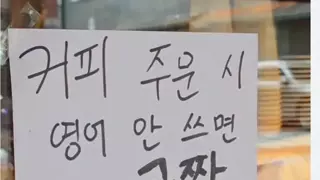 커피 주문 시
영어 안 쓰면